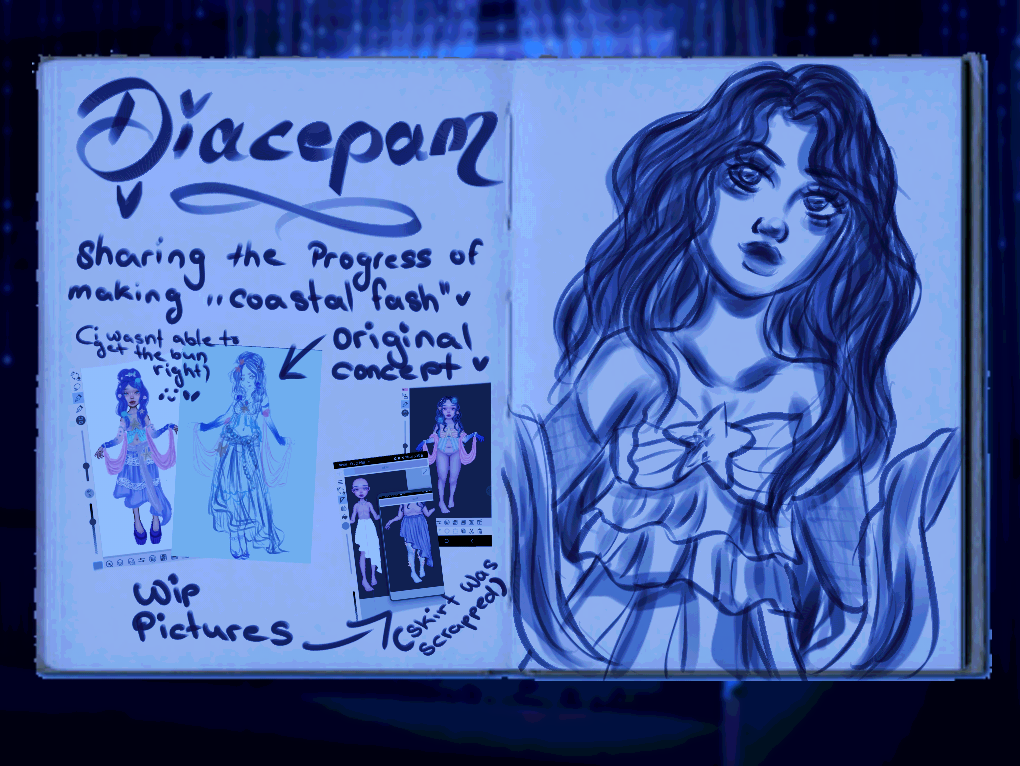 Diacepam
Sharing the Progress of
making ,,coastal fash"
(i wasnt able to
get the bun
right)
original
concept
Wip
Pictures
(skirt was
scrapped)